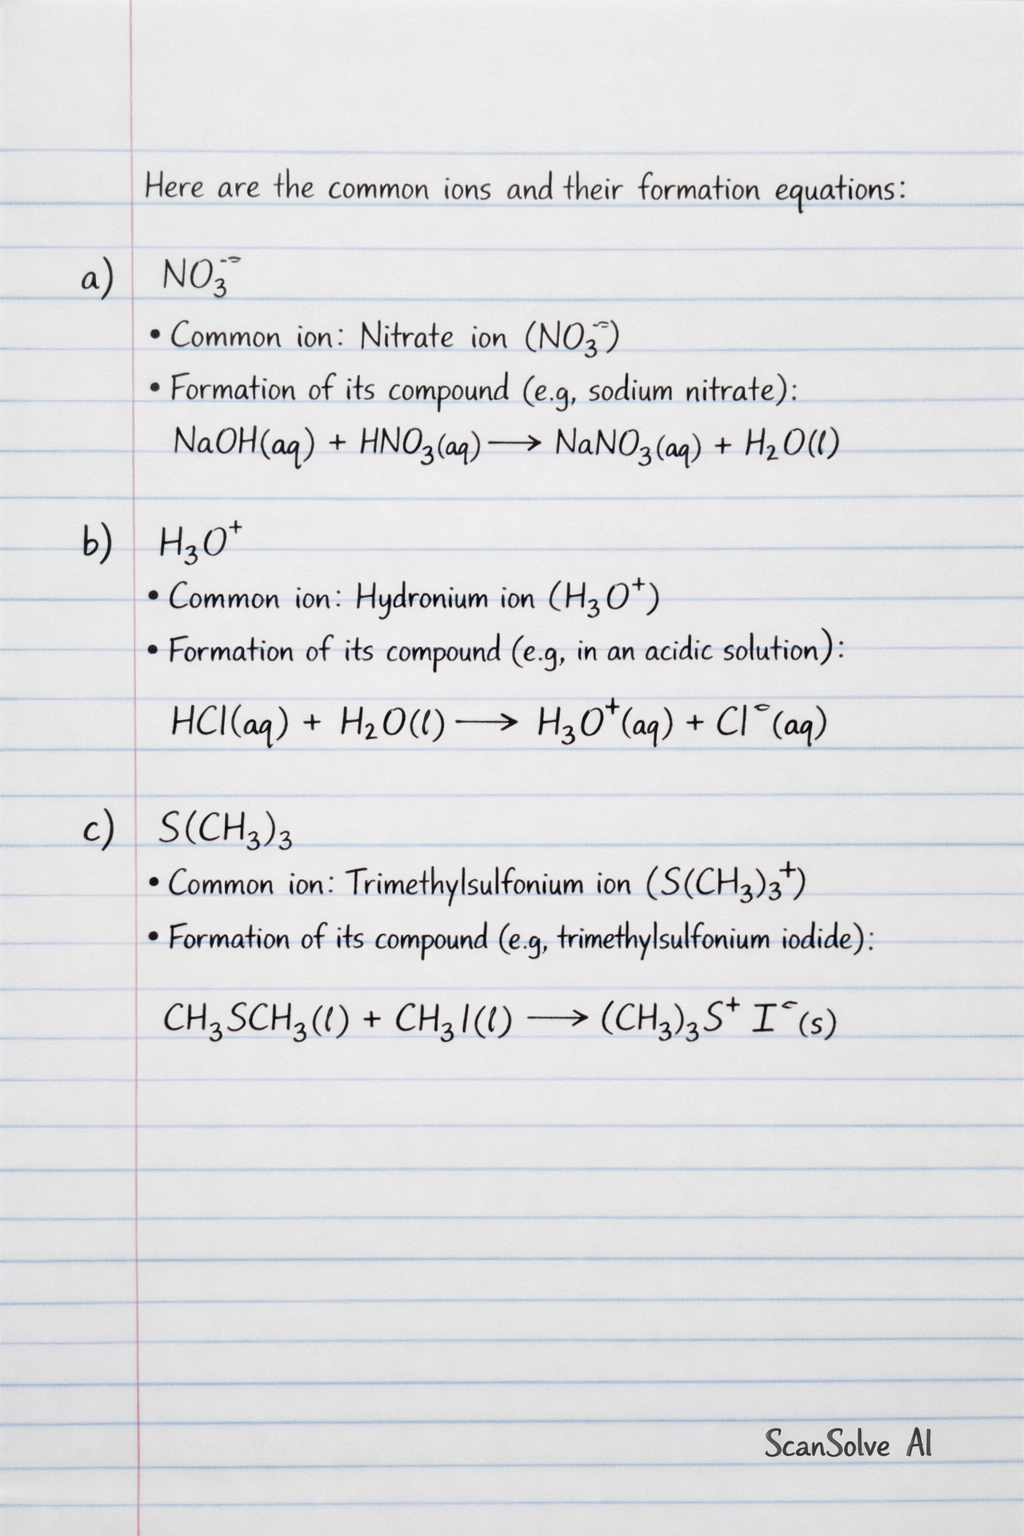 Here are the common ions and their formation equations:
a) NO₃⁻
• Common ion: Nitrate ion (NO₃⁻)
• Formation of its compound (e.g, sodium nitrate):
NaOH(aq) + HNO₃(aq) ⟶ NaNO₃(aq) + H₂O(l)
b) H₃O⁺
• Common ion: Hydronium ion (H₃O⁺)
• Formation of its compound (e.g, in an acidic solution):
HCl(aq) + H₂O(l) ⟶ H₃O⁺(aq) + Cl⁻(aq)
c) S(CH₃)₃
• Common ion: Trimethylsulfonium ion (S(CH₃)₃⁺)
• Formation of its compound (e.g, trimethylsulfonium iodide):
CH₃SCH₃(l) + CH₃I(l) ⟶ (CH₃)₃S⁺ I⁻(s)
ScanSolve AI